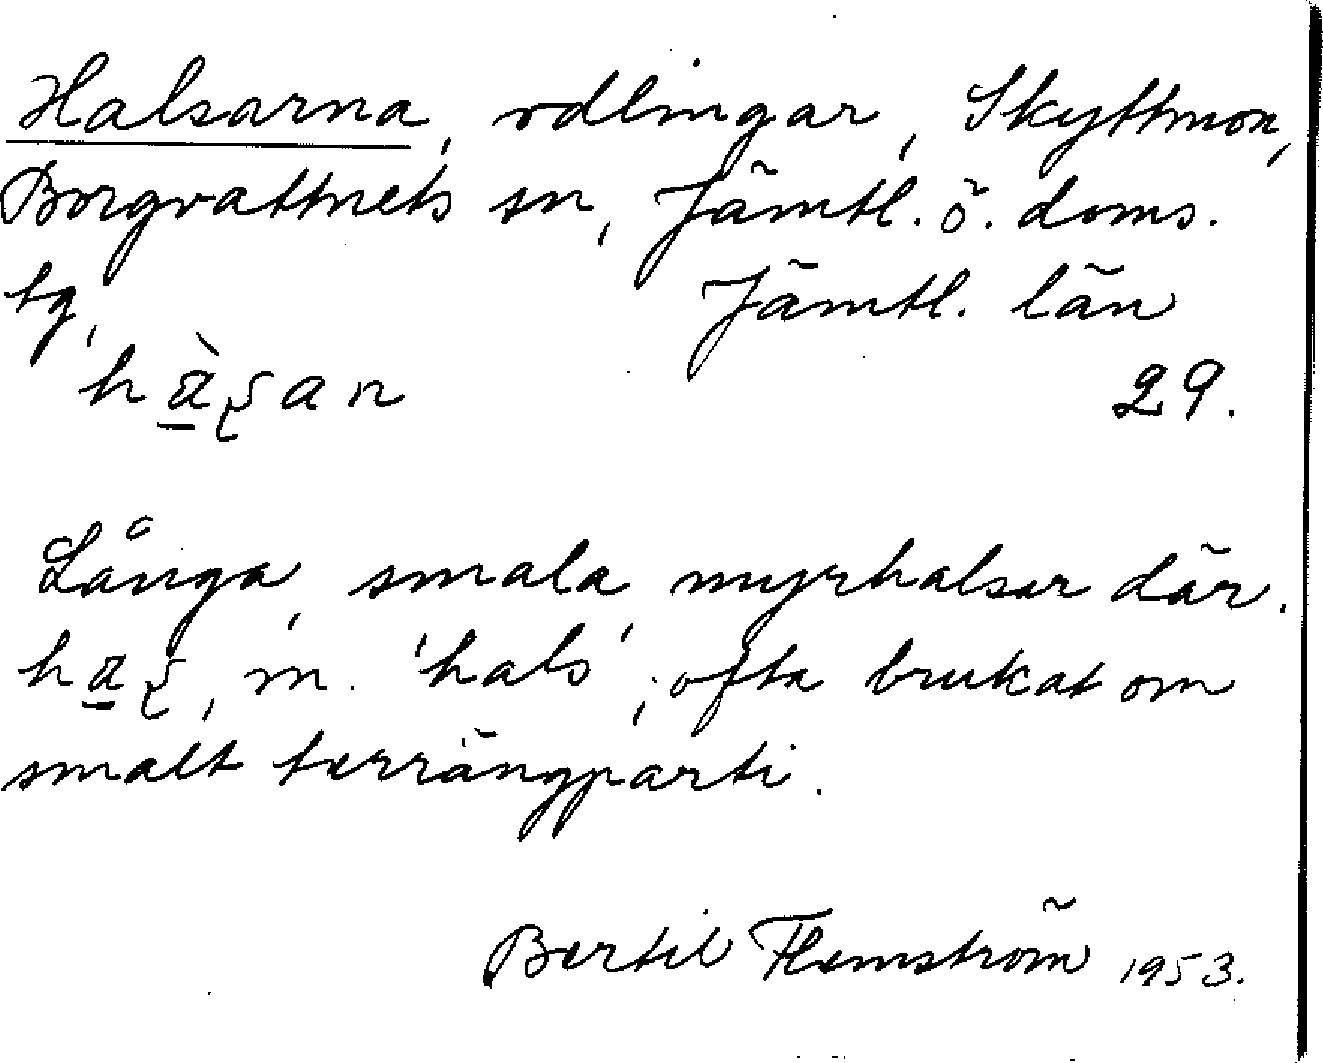 Halsarna, odlingar, Skyttmon,
Borgvattnets sn, Jämtl. ö. doms.
tg, Jämtl. län
29.
Långa, smala, myrhalsar där.
m. 'hals'; ofta brukat om
smalt terrängparti.
Bertil Flemström 1953.